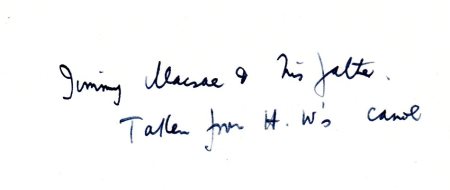 Jimmy Macrae & his father.
Taken from H. W's canoe